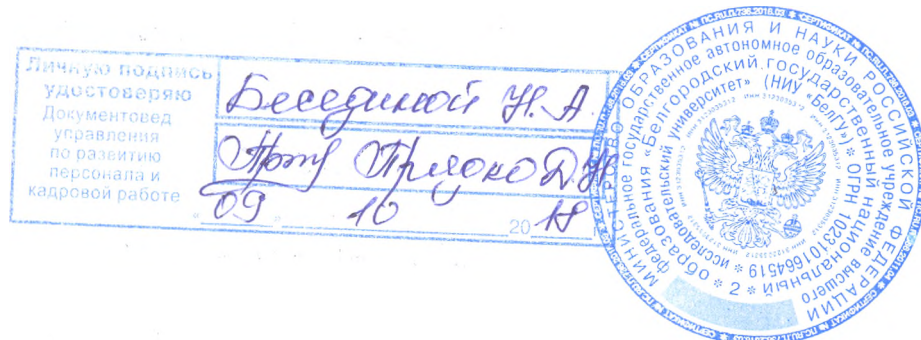 Личную подпись
удостоверяю
Документовед
управления
по развитию
персонала и
кадровой работе
Бесединой Н.А.
09 10 2018
МИНИСТЕРСТВО ОБРАЗОВАНИЯ И НАУКИ РОССИЙСКОЙ ФЕДЕРАЦИИ
федеральное государственное автономное образовательное учреждение высшего
образования «Белгородский государственный национальный
исследовательский университет» (НИУ «БелГУ») * ОГРН 1023101664519
* 2 *